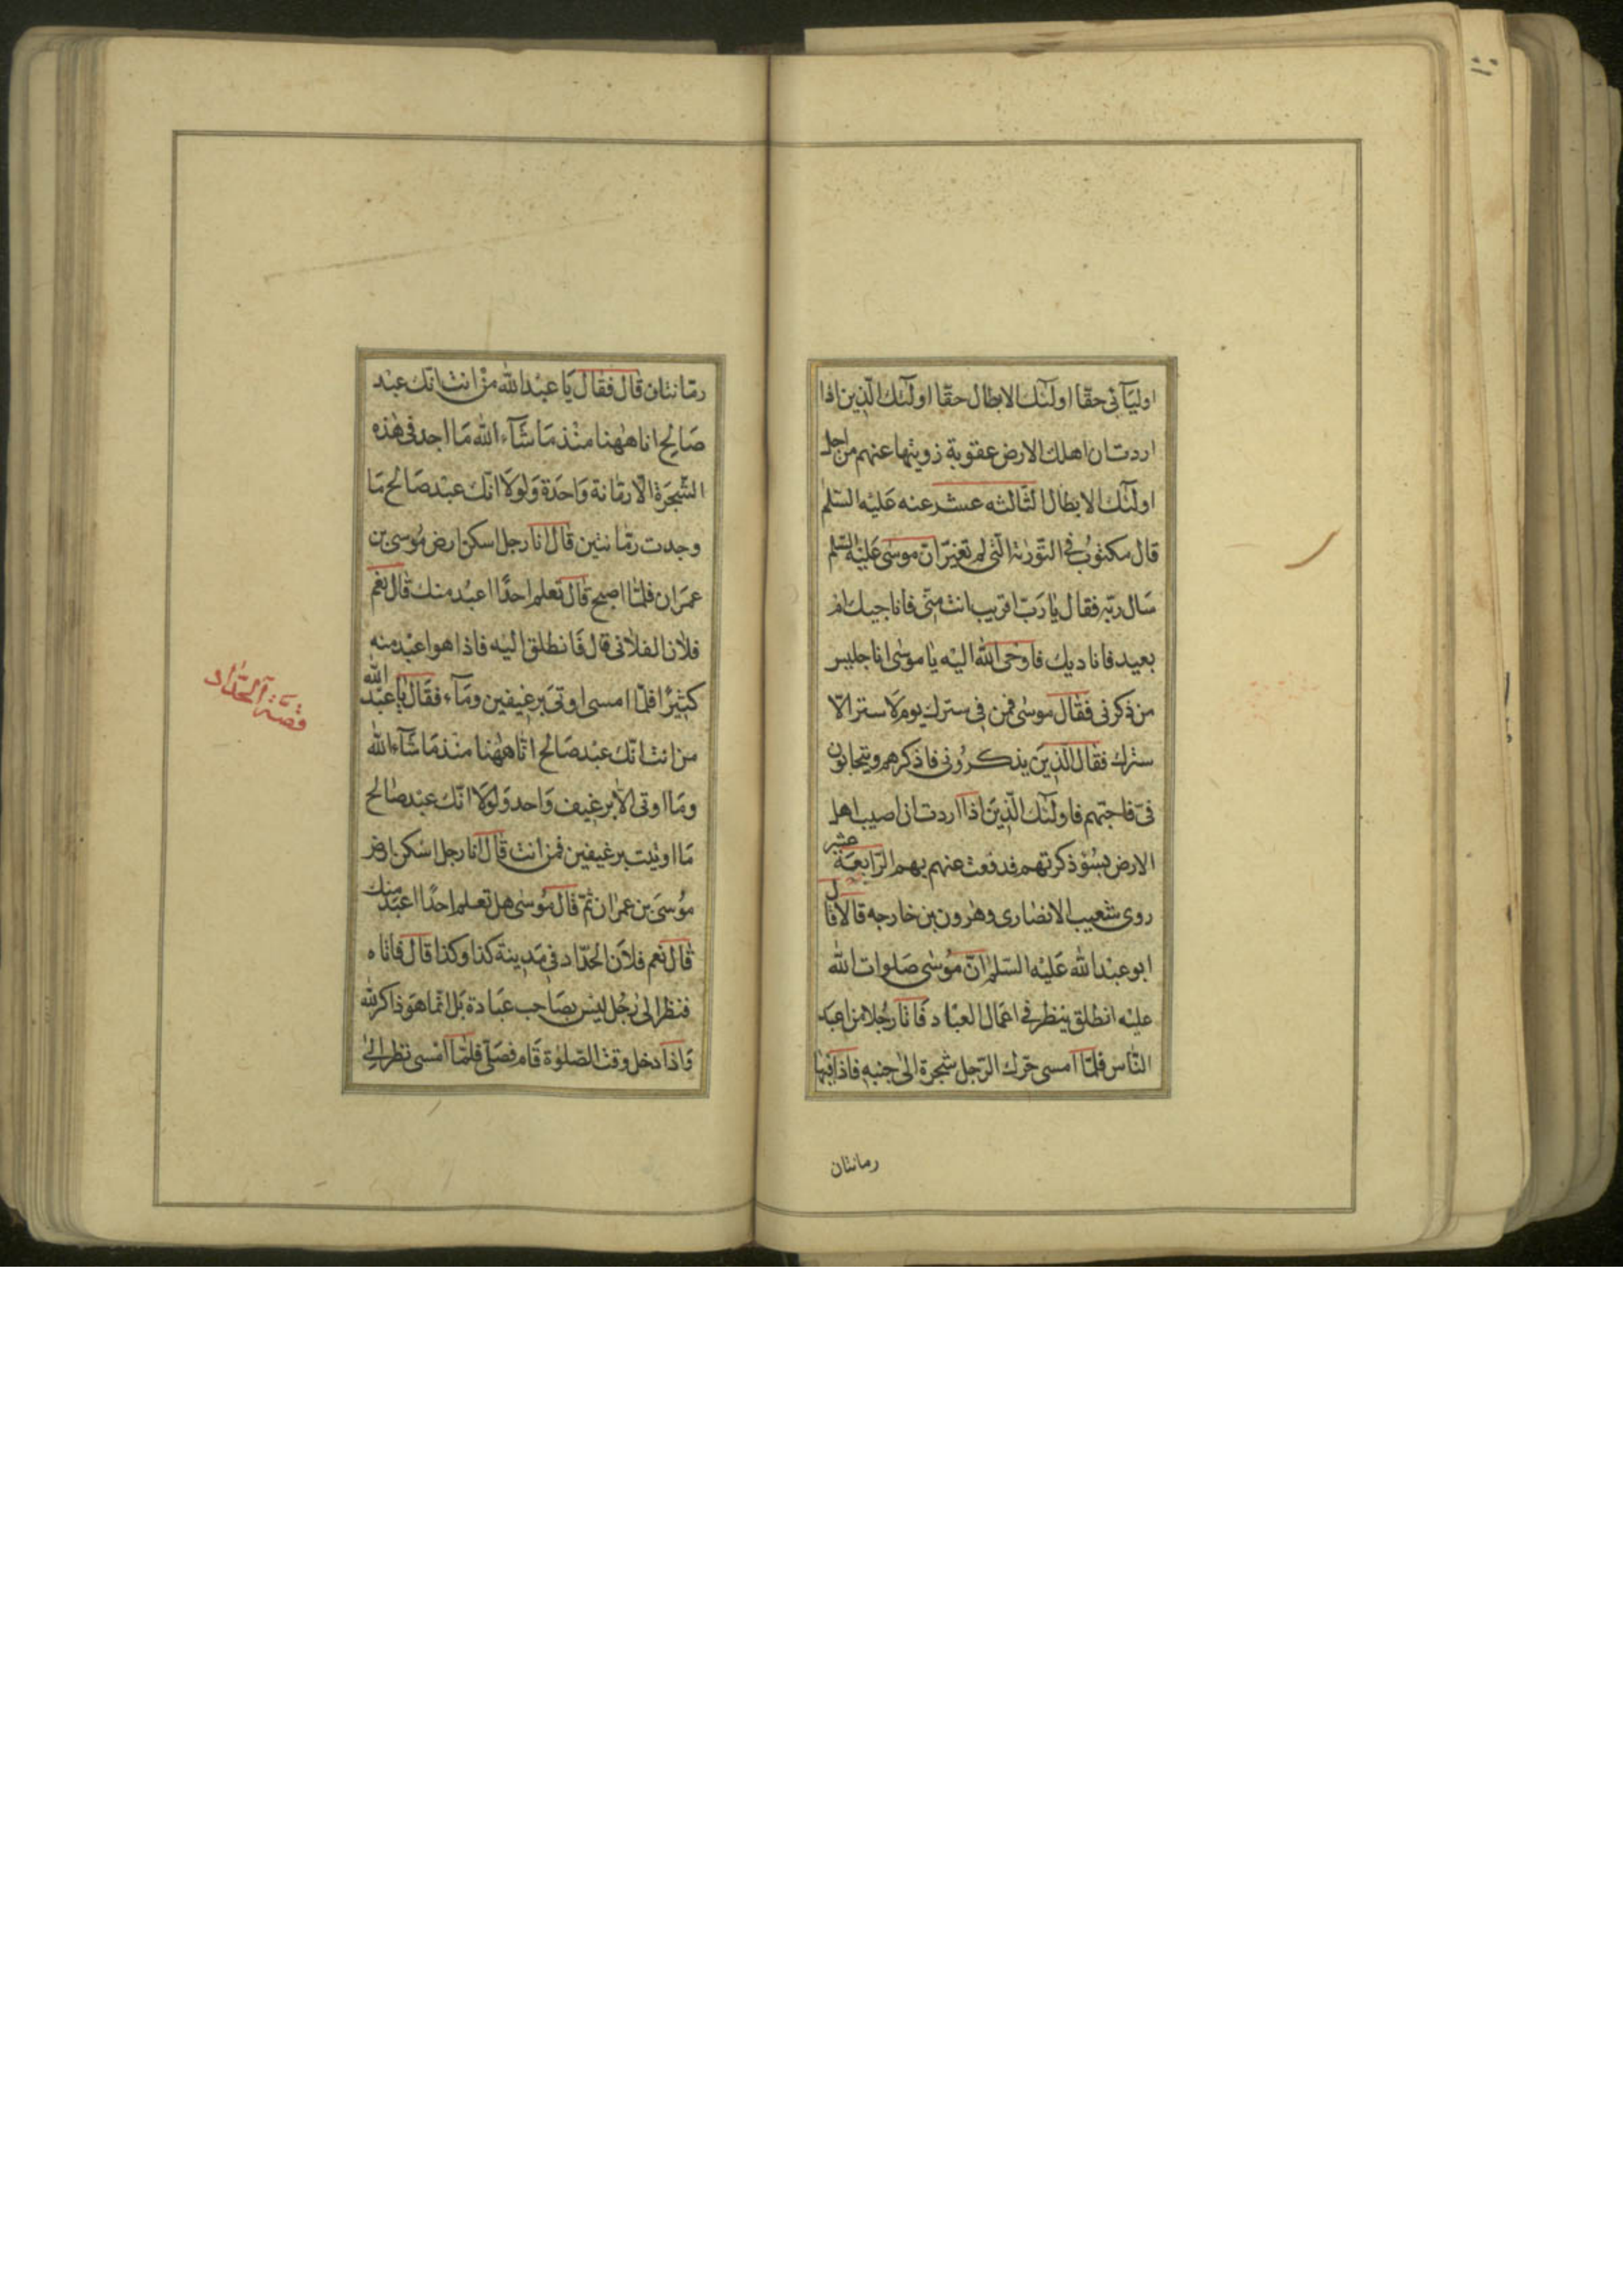 اوليآئى حقّا اولئك الابطال حقّا اولئك الّذين اذا
اردت ان اهلك الارض عقوبة زويتها عنهم من اجل
اولئك الابطال الثّالثه عشر عنه عليه السّلم
قال مكتوب في التّوريٰة الّتى لم تغيّر انّ موسى عليه السّلم
سال ربّه فقال يا ربّ اقريب انت منّى فاناجيك ام
بعيد فاناديك فاوحى الله اليه يا موسى انا جليس
من ذكرنى فقال موسى فمن فى سترك يوم لا ستر الّا
سترك فقال الّذين يذكرونى فاذكرهم ويتحابون
فىّ فاحبّهم فاولئك الّذين اذا اردت ان اصيب اهل
الارض بسوء ذكرتهم فدفعت عنهم بهم الرّابعة عشر
روى شعيب الانصارى وهٰرون بن خارجه قالا قال
ابو عبد الله عليه السّلم انّ موسى صلوات الله
عليه انطلق ينظر فى اعمال العبّاد فاتا رجلا من اعبد
النّاس فلمّا امسى حرّك الرّجل شجرة الى جنبه فاذا فيها
رمانتان
رمّانتان قال فقال يا عبد الله من انت انّك عبد
صالح انا هٰهنا منذ ما شآء الله ما اجد فى هٰذه
الشّجرة الّا رمّانة واحدة ولولا انّك عبد صالح ما
وجدت رمّانتين قال انا رجل اسكن ارض موسى بن
عمران فلمّا اصبح قال تعلم احدًا اعبد منك قال نعم
فلان الفلانى قال فانطلق اليه فاذا هو اعبد منه
كثيرًا فلمّا امسى اوتى برغيفين ومآء فقال يا عبد الله
من انت انّك عبد صالح انا هٰهنا منذ ما شآء الله
وما اوتى الّا برغيف واحد ولولا انّك عبد صالح
ما اوتيت برغيفين فمن انت قال انا رجل اسكن ارض
موسى بن عمران ثمّ قال موسى هل تعلم احدًا اعبد منك
قال نعم فلان الحدّاد فى مدينة كذا وكذا قال فاتاه
فنظر الى رجل ليس بصاحب عبادة بل انّما هو ذاكر لله
واذا دخل وقت الصّلوٰة قام فصلّى فلمّا امسى نظر الى
قصّة الحدّاد